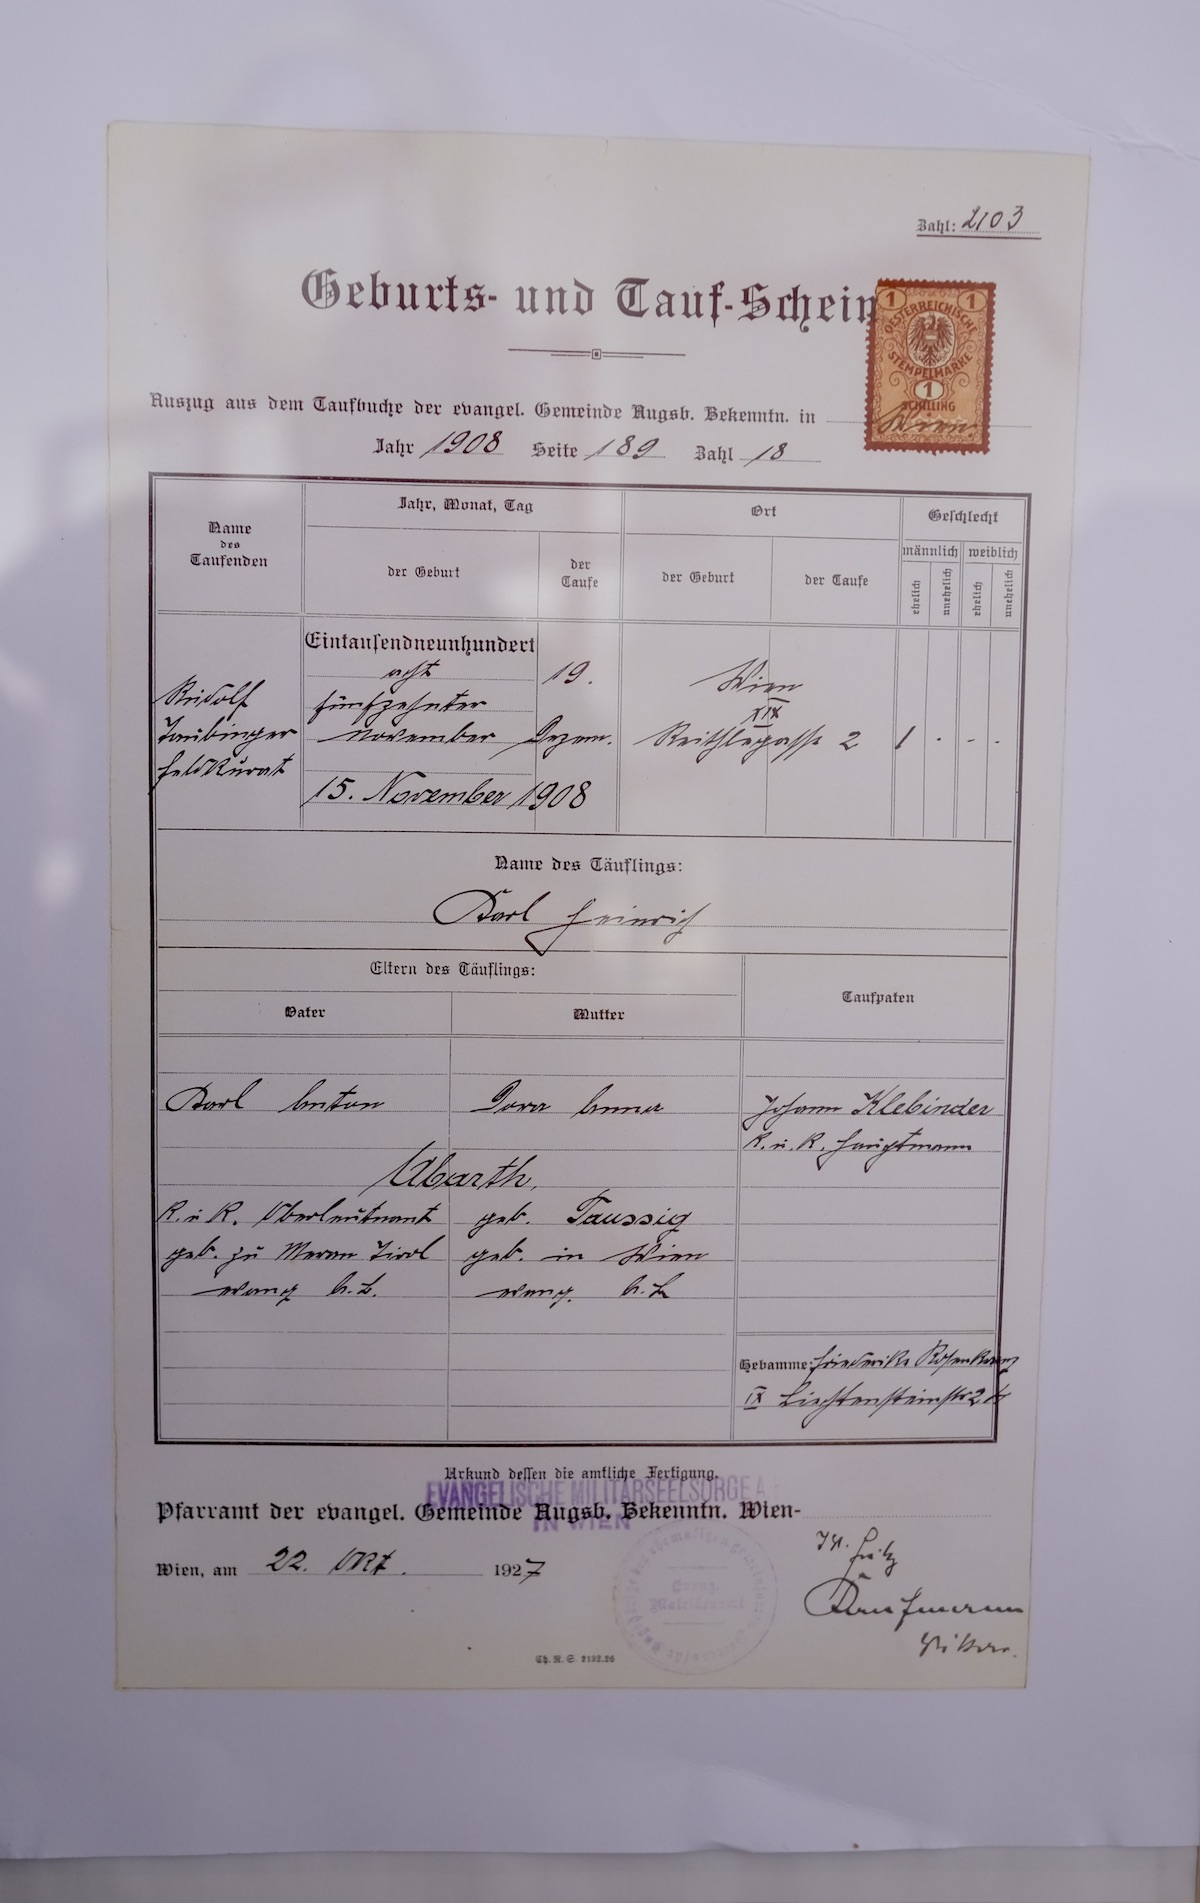 Zahl: 2103
Geburts- und Tauf-Schein
1 1
OESTERREICHISCHE
STEMPELMARKE
1
SCHILLING
Auszug aus dem Taufbuche der evangel. Gemeinde Augsb. Bekenntn. in Wien.
Jahr 1908 Seite 189 Zahl 18
Name des Taufenden
Jahr, Monat, Tag
der Geburt
der Taufe
Ort
der Geburt
der Taufe
Geschlecht
männlich weiblich
ehelich unehelich ehelich unehelich
Rudolf
Taubinger
Feldkurat
Eintausendneunhundert
acht
fünfzehnter
November
15. November 1908
19.
Dezem.
Wien
XIX
Reithlegasse 2
1 . - .
Name des Täuflings:
Karl Heinrich
Eltern des Täuflings:
Vater
Mutter
Taufpaten
Karl Anton
Dora Anna
Johann Klebinder
K. u. K. Hauptmann
Abarth.
K. u K. Oberleutnant
geb. zu Meran Tirol
evang A.B.
geb. Taussig
geb. in Wien
evang. A.B.
Hebamme: Friederike Rosenkranz
IX Liechtensteinstr 2
Urkund dessen die amtliche Fertigung.
EVANGELISCHE MILITÄRSEELSORGE A
IN WIEN
Pfarramt der evangel. Gemeinde Augsb. Bekenntn. Wien-
Wien, am 22. Okt. 1927
Fritz
Kaufmann
Vikar.
Th. R. S. 2132.26